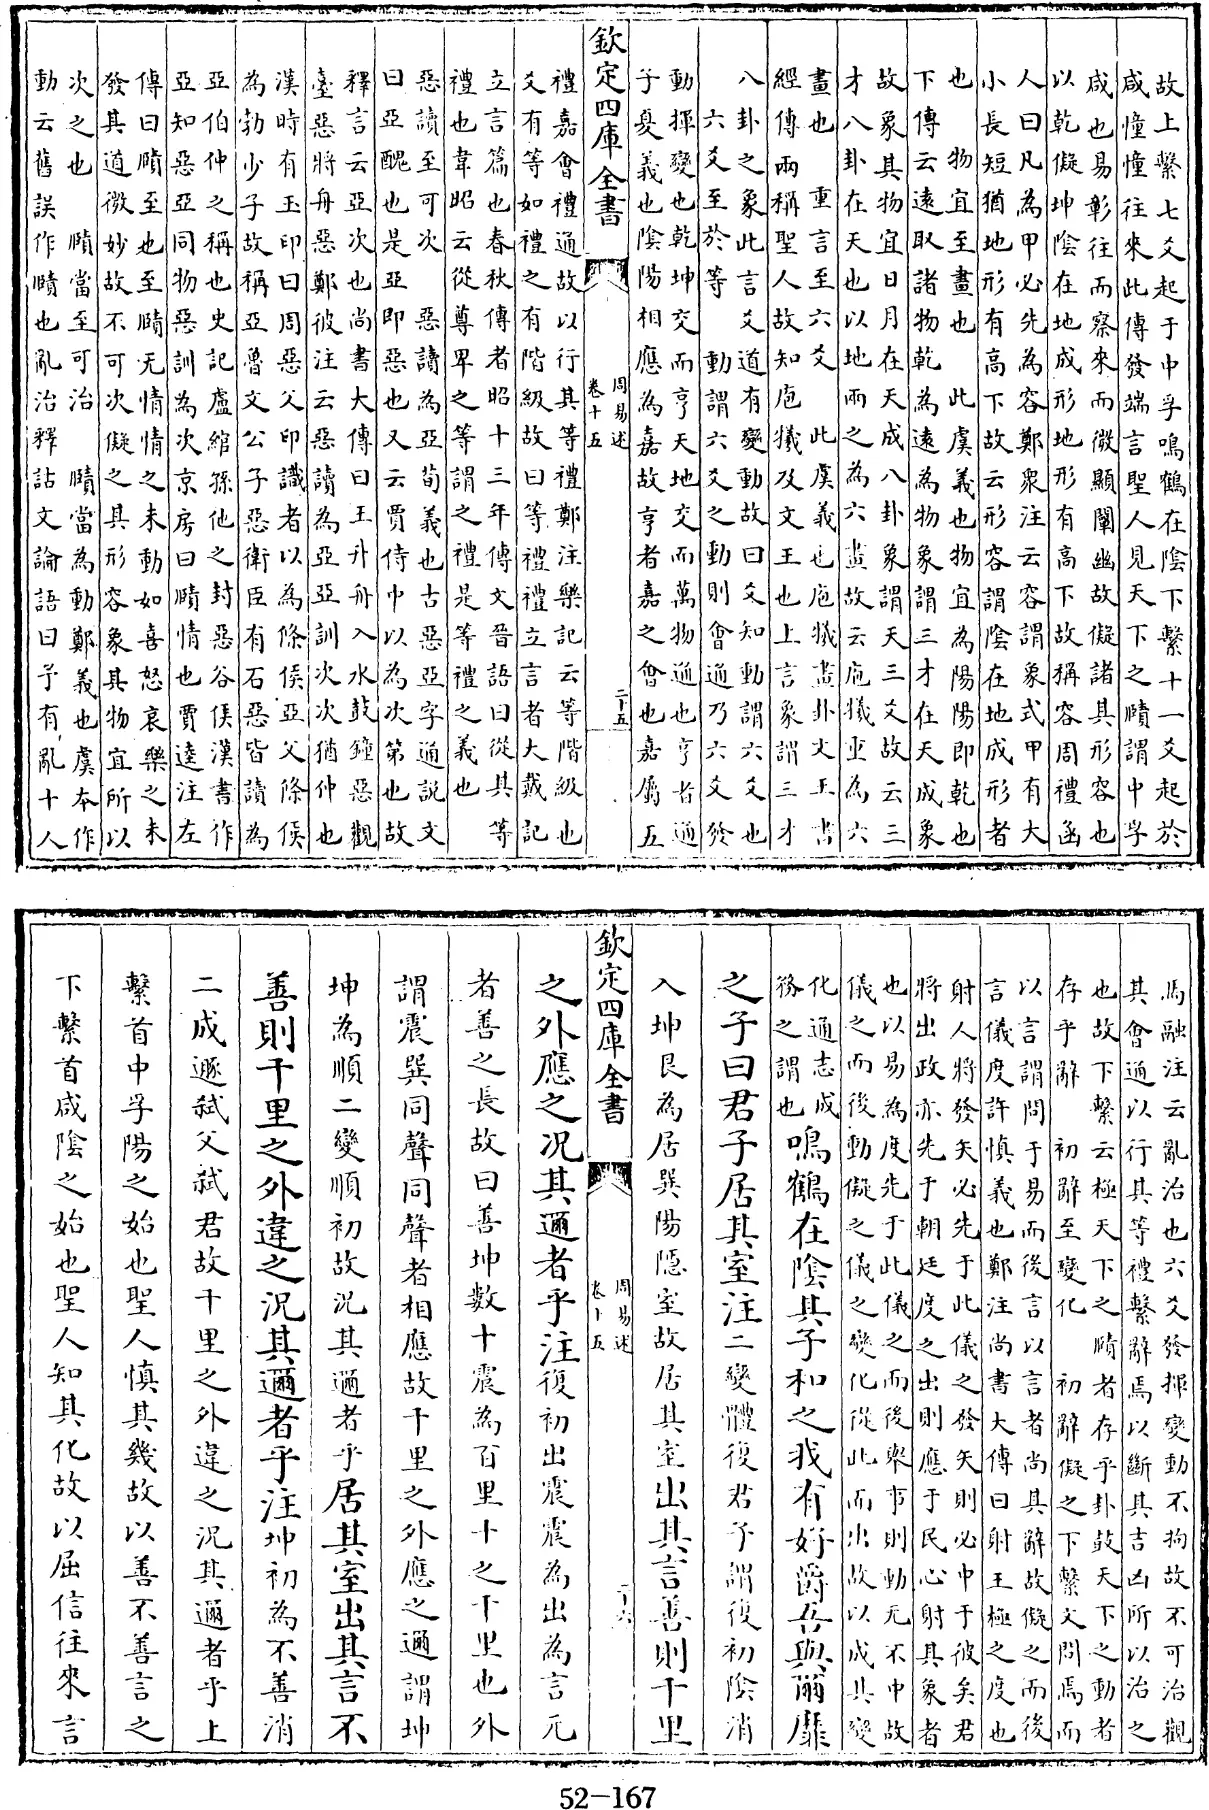 故上繫七爻起于中孚鳴鶴在陰下繫十一爻起於
咸憧憧往來此傳發端言聖人見天下之賾謂中孚
咸也易彰往而察來而微顯闡幽故儗諸其形容也
以乾儗坤陰在地成形地形有高下故稱容周禮函
人曰凡為甲必先為容鄭衆注云容謂象式甲有大
小長短猶地形有高下故云形容謂陰在地成形者
也　物宜至畫也　此虞義也物宜為陽陽即乾也
下傳云遠取諸物乾為遠為物象謂三才在天成象
故象其物宜日月在天成八卦象謂天三爻故云三
才八卦在天也以地兩之為六畫故云庖犧重為六
畫也　重言至六爻　此虞義也庖犧畫卦文王書
經傳兩稱聖人故知庖犧及文王也上言象謂三才
八卦之象此言爻道有變動故曰爻知動謂六爻也
　六爻至於等　動謂六爻之動則會通乃六爻發
動揮變也乾坤交而亨天地交而萬物通也亨者通
子夏義也陰陽相應為嘉故亨者嘉之會也嘉屬五
欽定四庫全書
周易述
卷十五
二十五
禮嘉會禮通故以行其等禮鄭注樂記云等階級也
爻有等如禮之有階級故曰等禮禮立言者大戴記
立言篇也春秋傳者昭十三年傳文晉語曰從其等
禮也韋昭云從尊卑之等謂之禮是等禮之義也
惡讀至可次　惡讀為亞荀義也古惡亞字通説文
曰亞醜也是亞即惡也又云賈侍中以為次第也故
釋言云亞次也尚書大傳曰王升舟入水鼓鐘惡觀
臺惡將舟惡鄭彼注云惡讀為亞亞訓次次猶仲也
漢時有玉印曰周惡父印識者以為條侯亞父條侯
為勃少子故稱亞魯文公子惡衛臣有石惡皆讀為
亞伯仲之稱也史記盧綰孫他之封惡谷侯漢書作
亞知惡亞同物惡訓為次京房曰賾情也賈逵注左
傳曰賾至也至賾无情情之未動如喜怒哀樂之未
發其道微妙故不可次儗之其形容象其物宜所以
次之也　賾當至可治　賾當為動鄭義也虞本作
動云舊誤作賾也亂治釋詁文論語曰予有亂十人
馬融注云亂治也六爻發揮變動不拘故不可治觀
其會通以行其等禮繫辭焉以斷其吉凶所以治之
也故下繫云極天下之賾者存乎卦鼓天下之動者
存乎辭　初辭至變化　初辭儗之下繫文問焉而
以言謂問于易而後言以言者尚其辭故儗之而後
言儀度許慎義也鄭注尚書大傳曰射王極之度也
射人將發矢必先于此儀之發矢則必中于彼矣君
將出政亦先于朝廷度之出則應于民心射其象者
也以易為度先于此儀之而後舉事則動无不中故
儀之而後動儗之儀之變化從此而出故以成其變
化通志成務之謂也鳴鶴在陰其子和之我有好爵吾與爾靡
之子曰君子居其室注二變體復君子謂復初陰消
入坤艮為居巽陽隱室故居其室出其言善則千里
欽定四庫全書
周易述
卷十五
二十六
之外應之況其邇者乎注復初出震震為出為言元
者善之長故曰善坤數十震為百里十之千里也外
謂震巽同聲同聲者相應故千里之外應之邇謂坤
坤為順二變順初故況其邇者乎居其室出其言不
善則千里之外違之況其邇者乎注坤初為不善消
二成遯弒父弒君故千里之外違之況其邇者乎上
繫首中孚陽之始也聖人慎其幾故以善不善言之
下繫首咸陰之始也聖人知其化故以屈信往來言
52-167